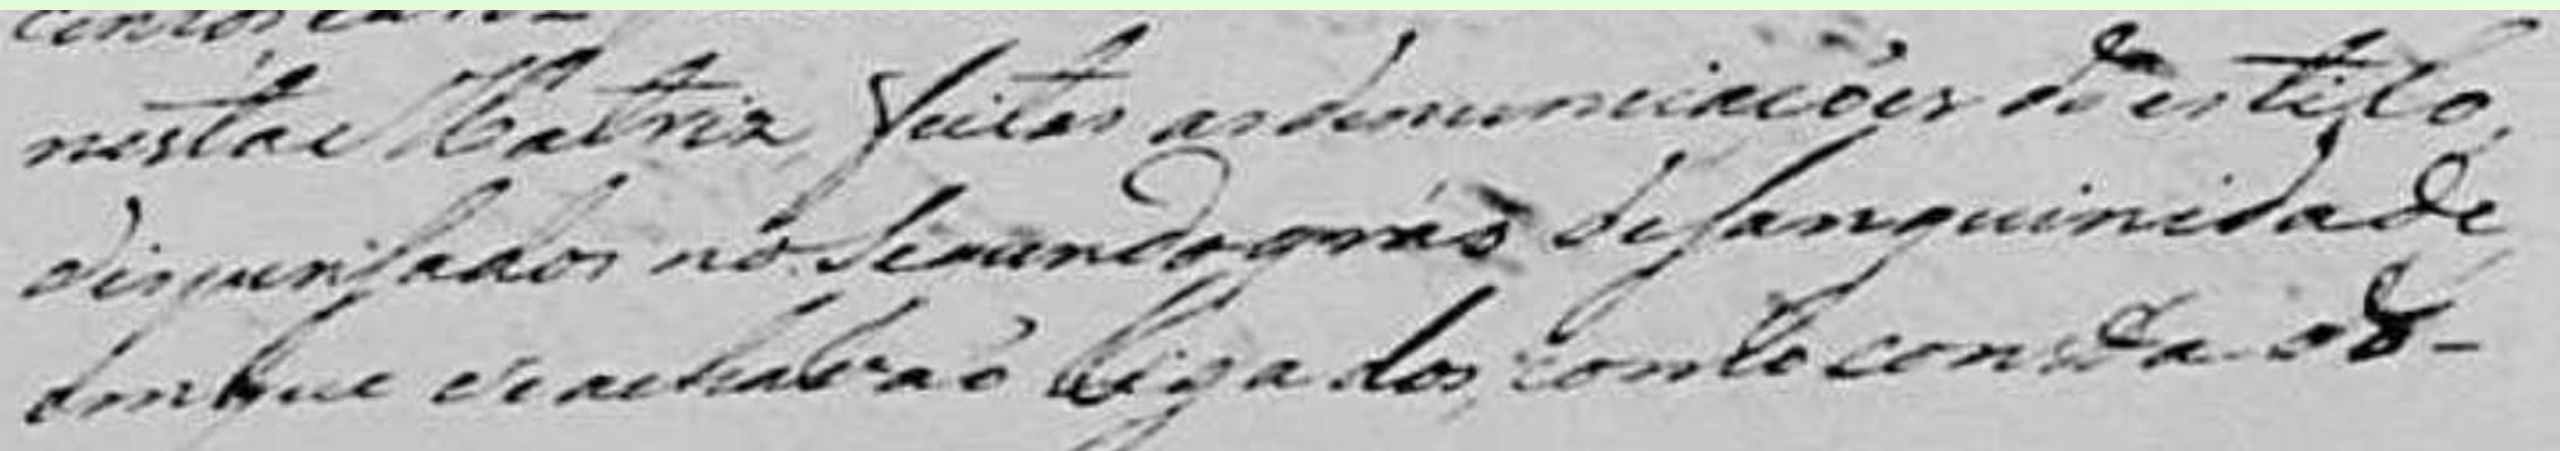 nesta Matriz, feitas as denunciações do estilo,
dispensados no segundo gráo de sanguinidade
em que se achavaõ ligados, como consta